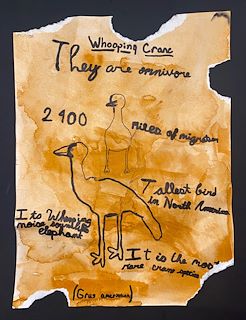 Whooping Crane
They are omnivore
2400
miles of migration
Tallest bird
in North America
Its Whooping
noise sounds like
elephant
It is the most
rare crane species
(Grus americana)